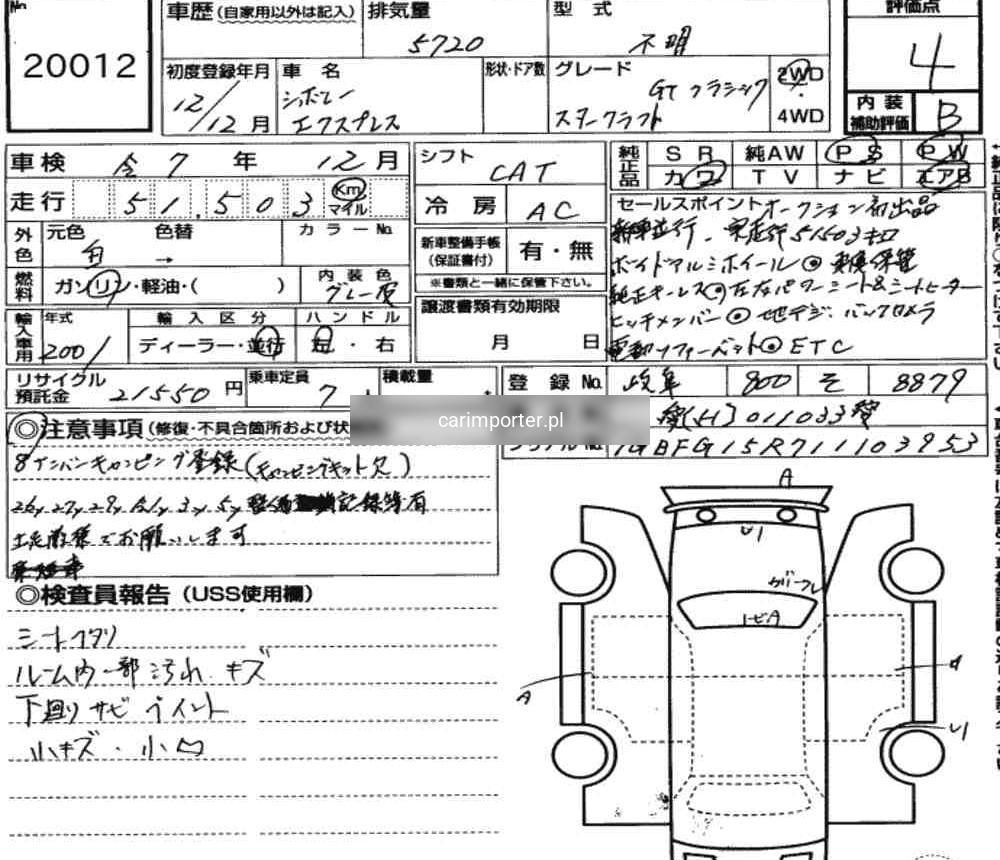 No.
20012
車歴 (自家用以外は記入)
排気量
5720
型式
不明
評価点
4
初度登録年月
12/12月
車名
シボレー
エクスプレス
形状・ドア数
グレード
GT クラシック
スタークラフト
2WD
4WD
内装
補助評価
B
車検 令7年 12月
走行 51.503 Km マイル
シフト
CAT
冷房
AC
純正品
SR 純AW PS PW
カワ TV ナビ エアB
外色
元色
色替
カラーNo.
白 →
燃料
ガソリン・軽油・( )
内装色
グレー
新車整備手帳
(保証書付)
有・無
※書類と一緒に保管下さい。
譲渡書類有効期限
月 日
セールスポイント オークション初出品
新車並行、実走行51503キロ
ボイドアルミホイール◎
純正キーレス◎ パワーシート&シートヒーター
ヒッチメンバー◎ 地デジ、バックカメラ
ETC
輸入車用
年式
2001
輸入区分
ディーラー・並行
ハンドル
左・右
リサイクル
預託金
21550円
乗車定員
7人
積載量
登録No.
岐阜 800 そ 8879
011033
1GBFG15R711103953
carimporter.pl
◎注意事項
8ナンバーキャンピング登録(キャンピングキット欠)
26y 27y 29y 3y 5y 記録簿有
お願いします
◎検査員報告 (USS使用欄)
シートヘタリ
ルーム内一部汚れ キズ
下廻りサビ ペイント
小キズ・小凹
A
A